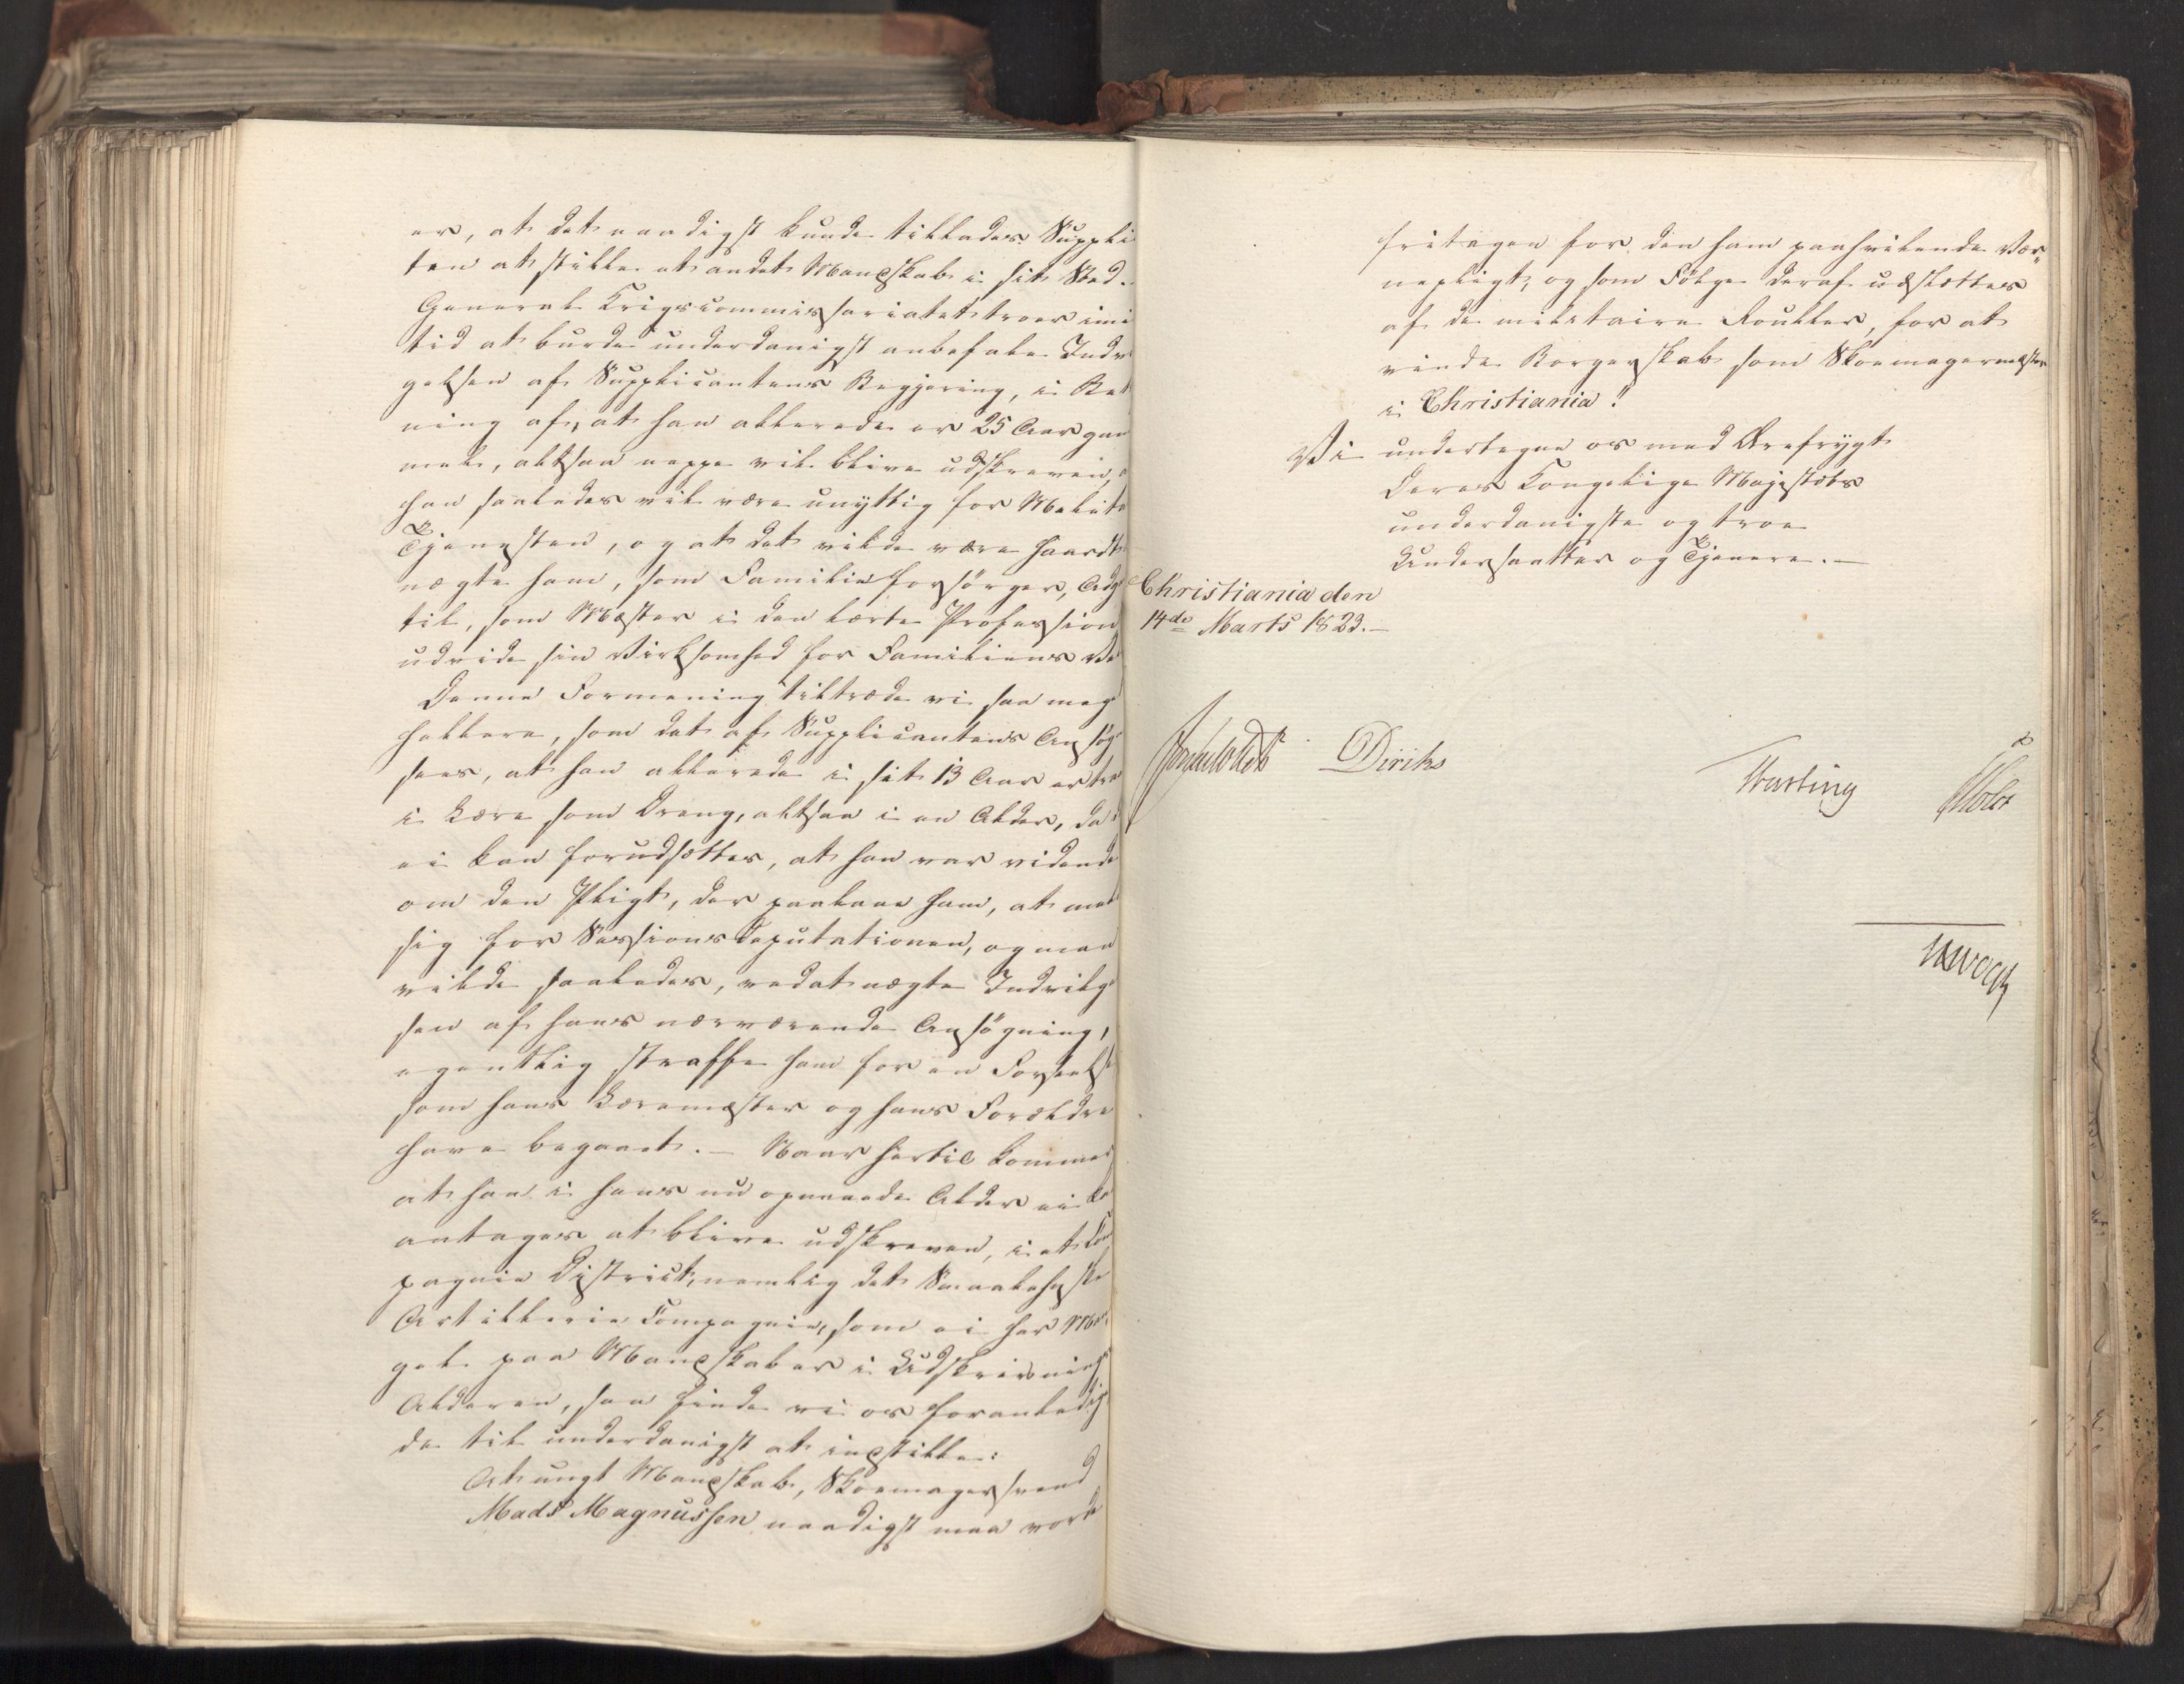 er, at det naadigst kunde tillades Suppli
ten at stille et andet Mandskab i sit Sted.
General Krigscommissariatet troer imi
tid at burde underdanigst anbefale Indvi
gelsen af Supplicantens Begjering, i Bet
ning af, at han allerede er 25 Aar gam
mel, altsaa neppe vil blive udskreven,
han saaledes vil være unyttig for Militæ
Tjenesten, og at det vilde være haardt
nægte ham, som Familieforsörger, Adg
til, som Mester i den lærte Profession
udvide sin Virksomhed for Familiens Ve
Denne Formening tiltræde vi saa meg
hellere, som det af Supplicantens Ansög
sees, at han allerede i sit 13 Aar er tra
i Lære som Dreng, altsaa i en Alder, da d
ei kan forudsættes, at han var vidende
om den Pligt, der paalaae ham, at mel
sig for Sessionsdeputationen, og man
vilde saaledes, ved at nægte Indvilg
sen af hans nærværende Ansögning,
egentlig straffe ham for en Forseelse
som hans Læremester og hans Forældre
have begaaet. – Naar hertil kommer
at han i hans nu opnaaede Alder ei ka
antages at blive udskreven, i et Com
pagnie District, nemlig det Smaalehnske
Artillerie Compagnie, som ei har Man
gel paa Mandskaber i Udskrivnings
Alderen, saa finde vi os foranledig
de til underdanigst at indstille:
At ungt Mandskab, Skomagersvend
Mads Magnussen naadigst maa vorde
fritagen for den ham paahvilende Vær„
nepligt, og som Fölge deraf udslettes
af de militaire Rouller, for at
vinde Borgerskab som Skomagermester
i Christiania!
Vi undertegne os med Ærefrygt
Deres Kongelige Majestæts
underdanigste og troe
Undersaatter og Tjenere. –
Christiania den
14de Marts 1823. –
Diriks
Motzfeldt